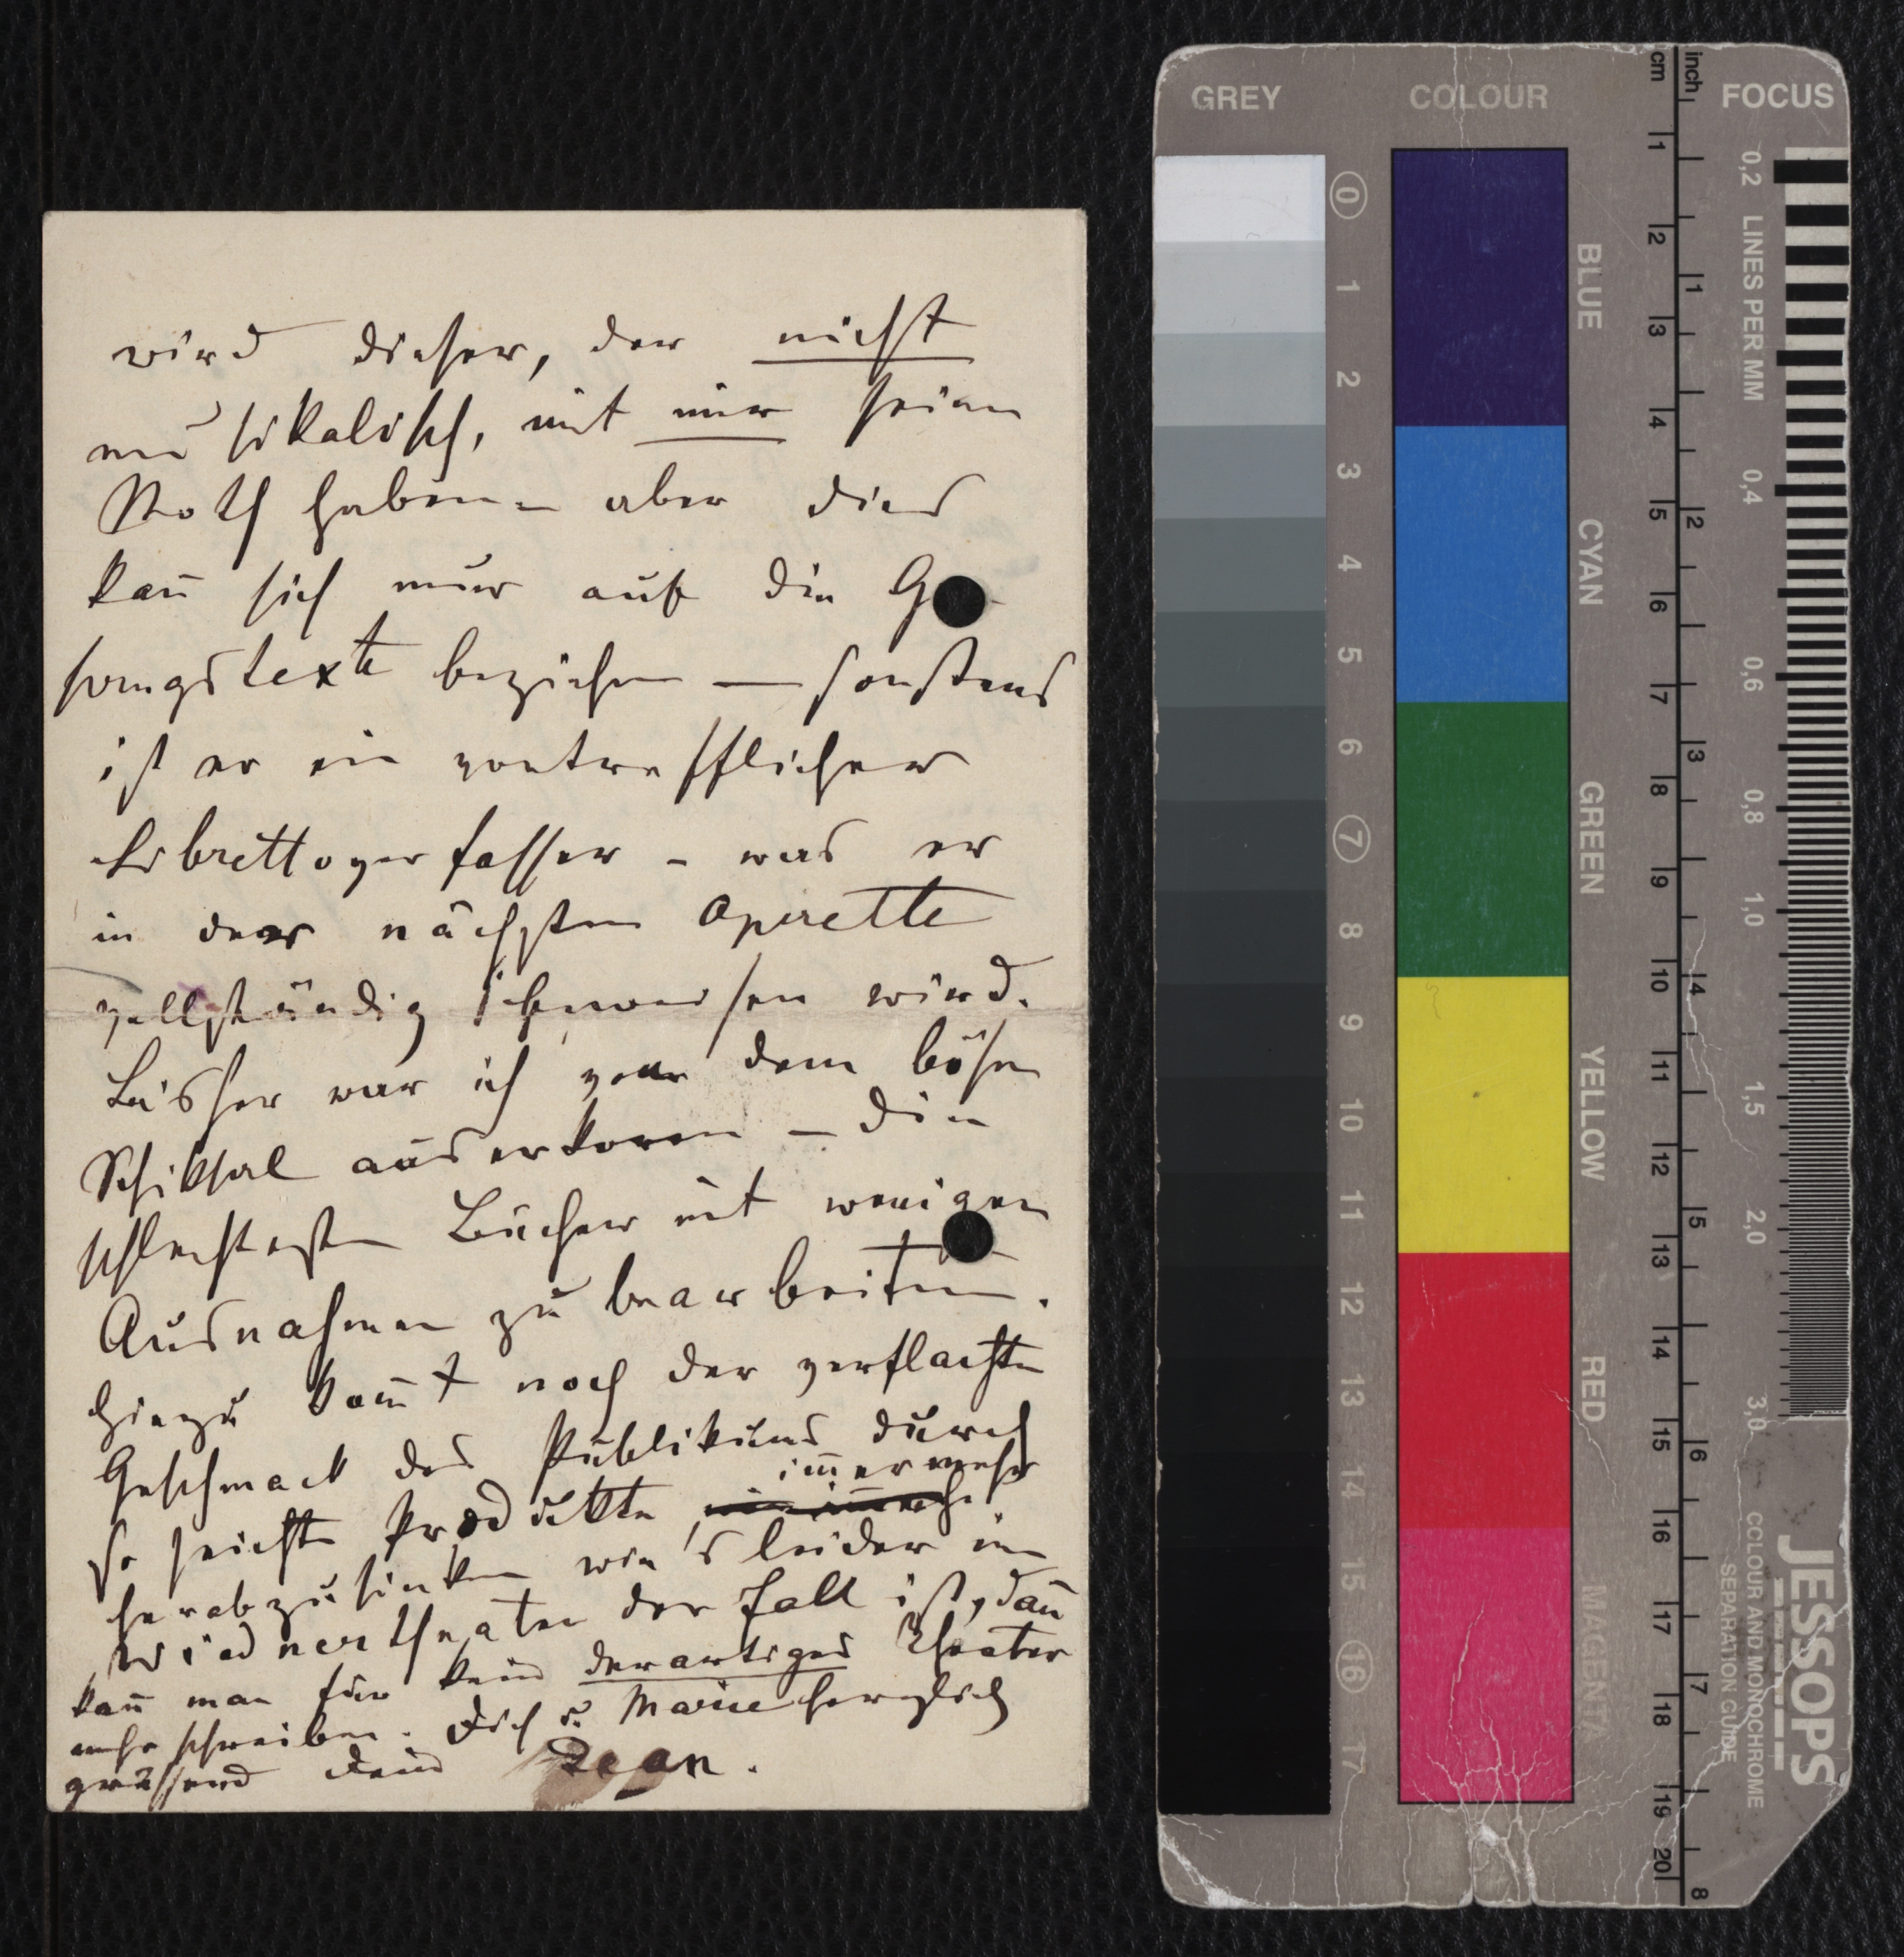 wird dieser, der nicht
musikalisch, mit mir seine
Noth haben – aber dies
kan̄ sich nur auf die Ge-
sangstexte beziehen — sonstens
ist er ein vortrefflicher
Librettoverfasser – was er
in der nächsten Operette
vollständig beweisen wird.
Bisher war ich von dem bösen
Schiksal auserkoren – die
schlechtesten Bücher mit wenigen
Ausnahmen zu bearbeiten.
Hiezu kom̄t noch der verflachte
Geschmack des Publikums durch
im̄er mehr
so seichte Produkte
herabzusinken wie's leider im
Wiednertheater der Fall ist, dan̄
kan̄ man für kein derartiges Theater
mehr schreiben. Dich u Marie herzlich
grüssend Dein Jean.
GREY COLOUR FOCUS
cm inch
0 1 2 3 4 5 6 7 8 9 10 11 12 13 14 15 16 17
BLUE
CYAN
GREEN
YELLOW
RED
MAGENTA
1 2 3 4 5 6 7 8 9 10 11 12 13 14 15 16 17 18 19 20
1 2 3 4 5 6 7 8
0,2 LINES PER MM 0,4 0,6 0,8 1,0 1,5 2,0 3,0
JESSOPS
COLOUR AND MONOCHROME
SEPARATION GUIDE